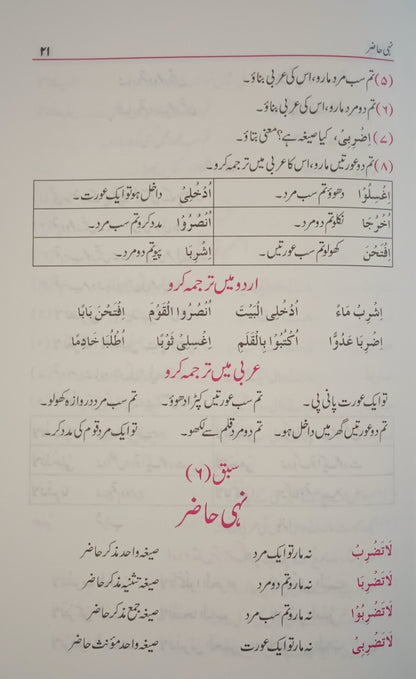 نہی حاضر ۲۱
(۵) تم سب مرد مارو، اس کی عربی بناؤ۔
(۶) تم دو مرد مارو، اس کی عربی بناؤ۔
(۷) اِضْرِبِیْ، کیا صیغہ ہے؟ معنی بتاؤ۔
(۸) تم دو عورتیں مارو، اس کا عربی میں ترجمہ کرو۔
اِغْسِلُوْا دھوؤ تم سب مرد۔ اُدْخُلِیْ داخل ہو تو ایک عورت۔
اُخْرُجَا نکلو تم دو مرد۔ اُنْصُرُوْا مدد کرو تم سب مرد۔
اِفْتَحْنَ کھولو تم سب عورتیں۔ اِشْرِبَا پیو تم دو مرد۔
اردو میں ترجمہ کرو
اِشْرِبُ مَاءً اُدْخُلِی الْبَیْتَ اُنْصُرُوا الْقَوْمَ اِفْتَحْنَ بَابًا
اِضْرِبَا عَدُوًّا اُكْتُبُوْا بِالْقَلَمِ اِغْسِلِیْ ثَوْبًا اُطْلُبَا خَادِمًا
عربی میں ترجمہ کرو
تو ایک عورت پانی پی۔ تم سب عورتیں کپڑا دھوؤ۔ تم سب مرد دروازہ کھولو۔
تم دو عورتیں گھر میں داخل ہو۔ تم دو مرد قلم سے لکھو۔ تو ایک مرد قوم کی مدد کر۔
سبق (۶)
نہی حاضر
لَاتَضْرِبْ نہ مار تو ایک مرد صیغہ واحد مذکر حاضر
لَاتَضْرِبَا نہ مارو تم دو مرد صیغہ تثنیہ مذکر حاضر
لَاتَضْرِبُوْا نہ مارو تم سب مرد صیغہ جمع مذکر حاضر
لَاتَضْرِبِیْ نہ مار تو ایک عورت صیغہ واحد مؤنث حاضر